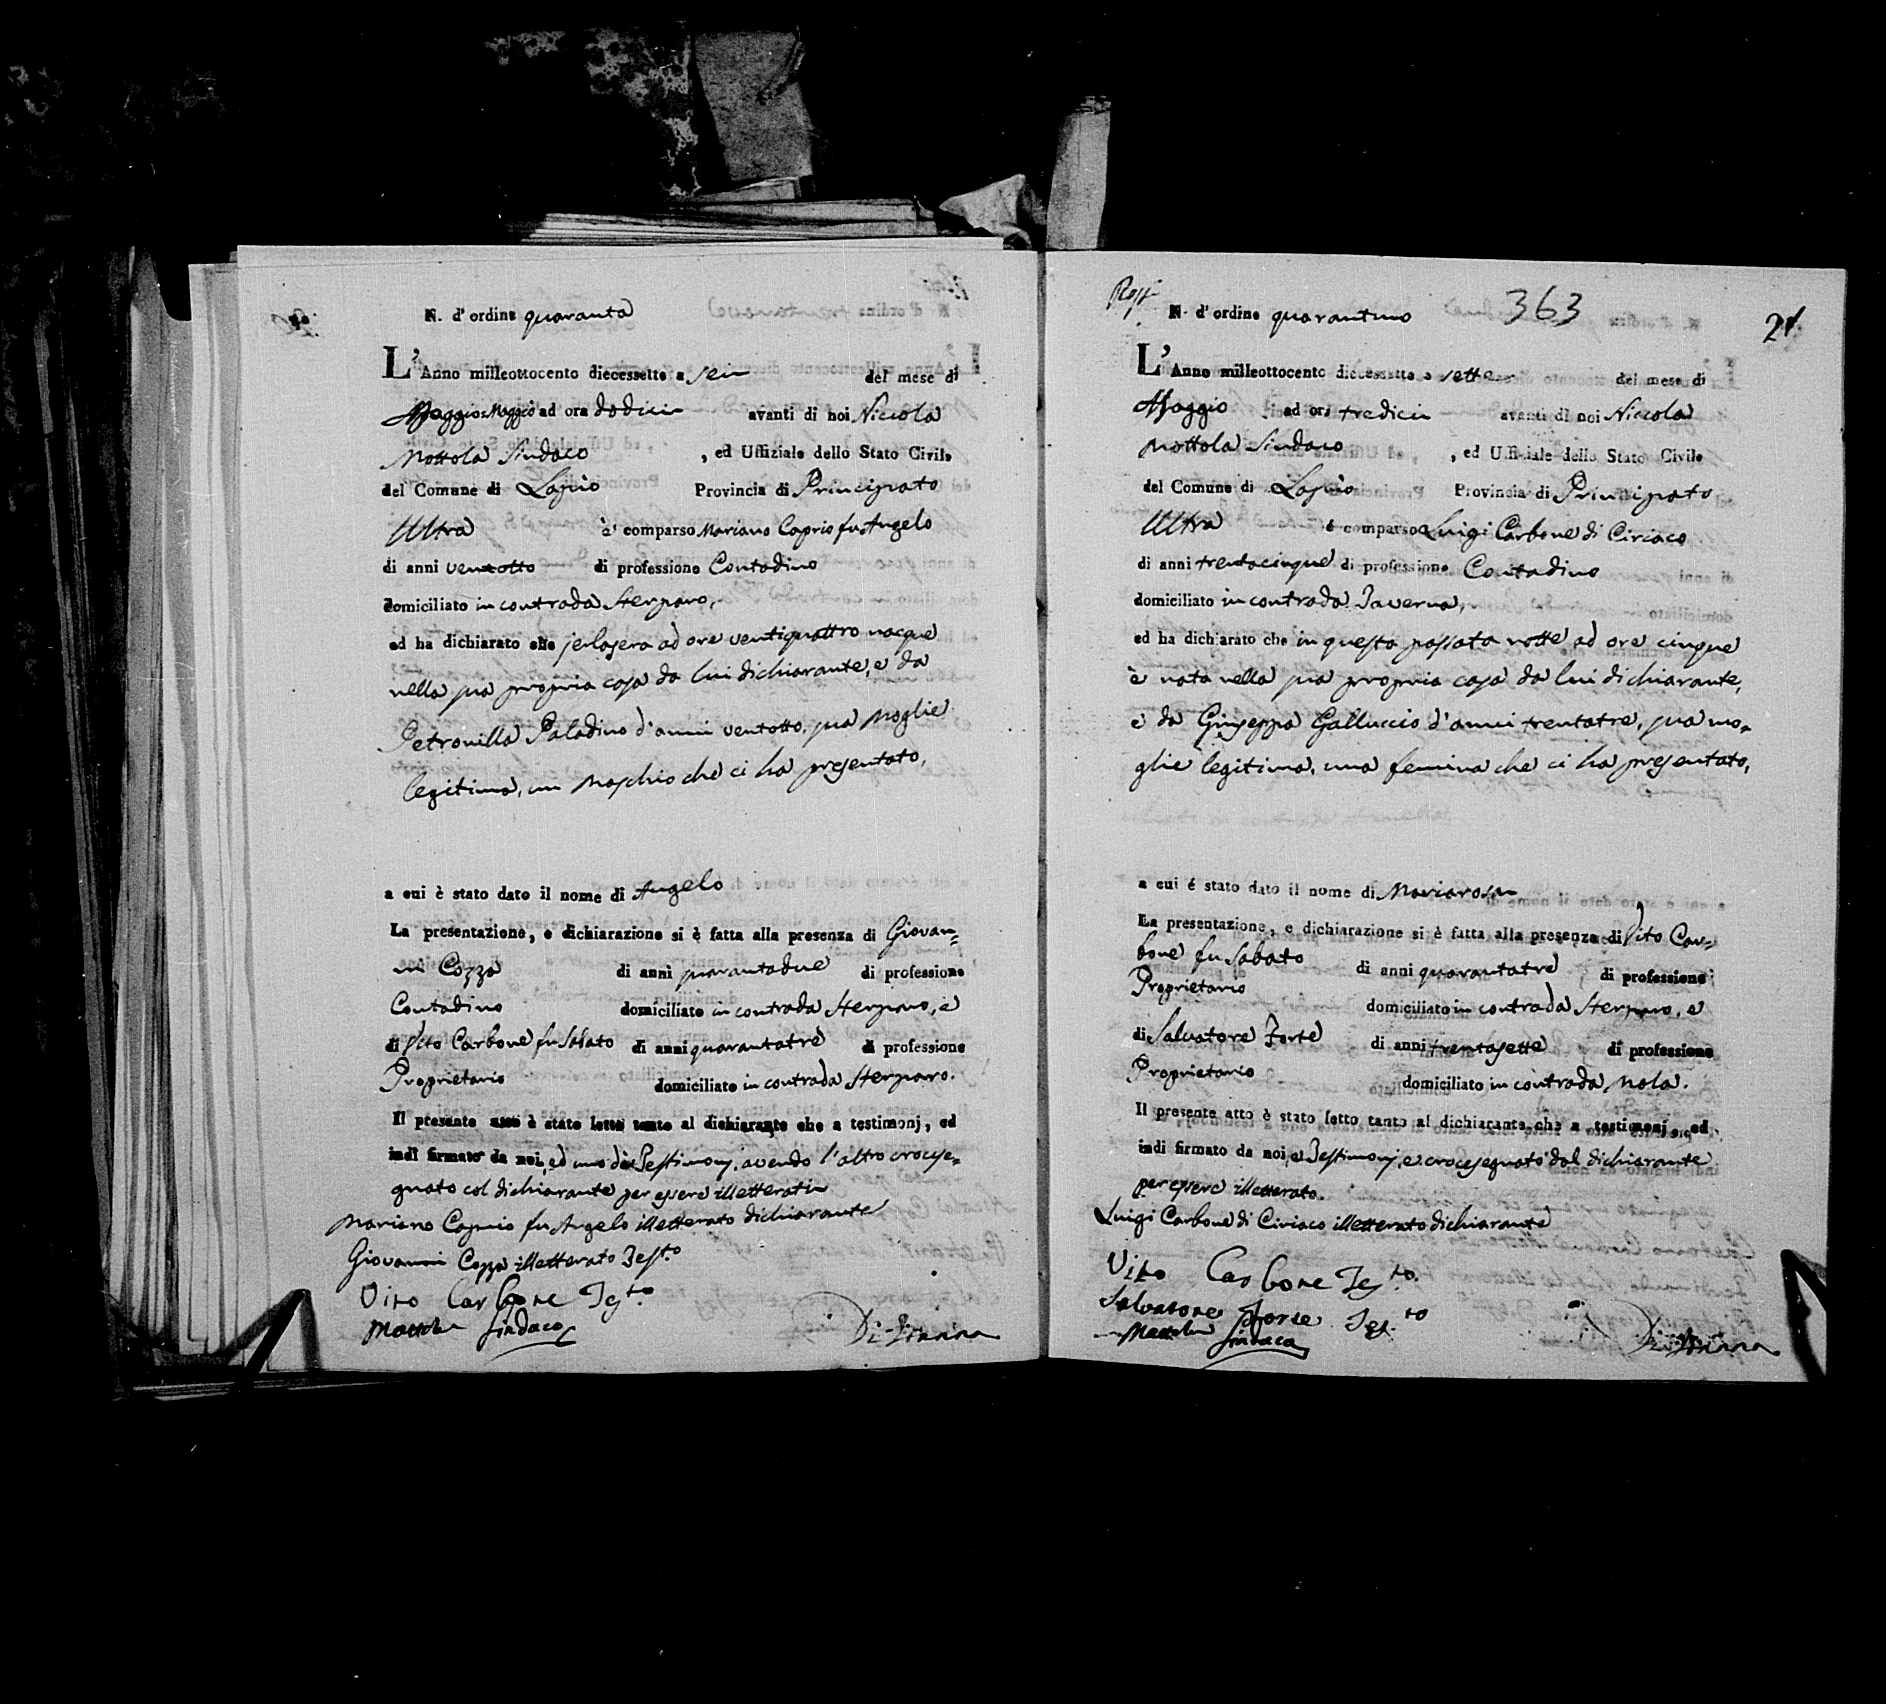 N. d' ordine quaranta
L' Anno milleottocento diecessette a sei del mese di
Maggio Maggio ad ora dodici avanti di noi Niccola
Mottola Sindaco , ed Uffiziale dello Stato Civile
del Comune di Lapio Provincia di Principato
Ultra è comparso Mariano Caprio fu Angelo
di anni ventotto di professione Contadino
domiciliato in contrada Sterparo,
ed ha dichiarato che jerlasera ad ore ventiquattro nacque
nella sua propria casa da lui dichiarante, e da
Petronilla Paladino d'anni ventotto, sua Moglie
legitima, un Maschio che ci ha presentato,
a cui è stato dato il nome di Angelo
La presentazione, e dichiarazione si è fatta alla presenza di Giovan=
ni Cozza di anni quarantadue di professione
Contadino domiciliato in contrada Sterparo, e
di Vito Carbone fu Sabato di anni quarantatre di professione
Proprietario domiciliato in contrada Sterparo.
Il presente atto è stato letto tanto al dichiarante che a testimonj, ed
indi firmato da noi, ed uno dei Testimonj, avendo l'altro crocese=
gnato col dichiarante per essere illetterati
Mariano Caprio fu Angelo illetterato dichiarante
Giovanni Cozza illetterato Test.to
Vito Carbone Tes.to
Mottola Sindaco
Rosst
N. d' ordine quarantuno 363
21
L' Anno milleottocento diecessette a sette del mese di
Maggio ad ora tredici avanti di noi Niccola
Mottola Sindaco , ed Uffiziale dello Stato Civile
del Comune di Lapio Provincia di Principato
Ultra è comparso Luigi Carbone di Ciriaco
di anni trentacinque di professione Contadino
domiciliato in contrada Taverna,
ed ha dichiarato che in questa passata notte ad ore cinque
è nata nella sua propria casa da lui dichiarante,
e da Giuseppa Galluccio d'anni trentatre, sua mo=
glie legitima, una femina che ci ha presentato,
a cui é stato dato il nome di Mariarosa
La presentazione, e dichiarazione si è fatta alla presenza di Vito Car=
bone fu Sabato di anni quarantatre di professione
Proprietario domiciliato in contrada Sterparo, e
di Salvatore Forte di anni trentasette di professione
Proprietario domiciliato in contrada Nola.
Il presente atto è stato letto tanto al dichiarante che a testimonj, ed
indi firmato da noi, e Testimonj, e crocesegnato dal dichiarante
per essere illetterato.
Luigi Carbone di Ciriaco illetterato dichiarante
Vito Carbone Tes.to
Salvatore Forte Tes.to
Mottola Sindaco